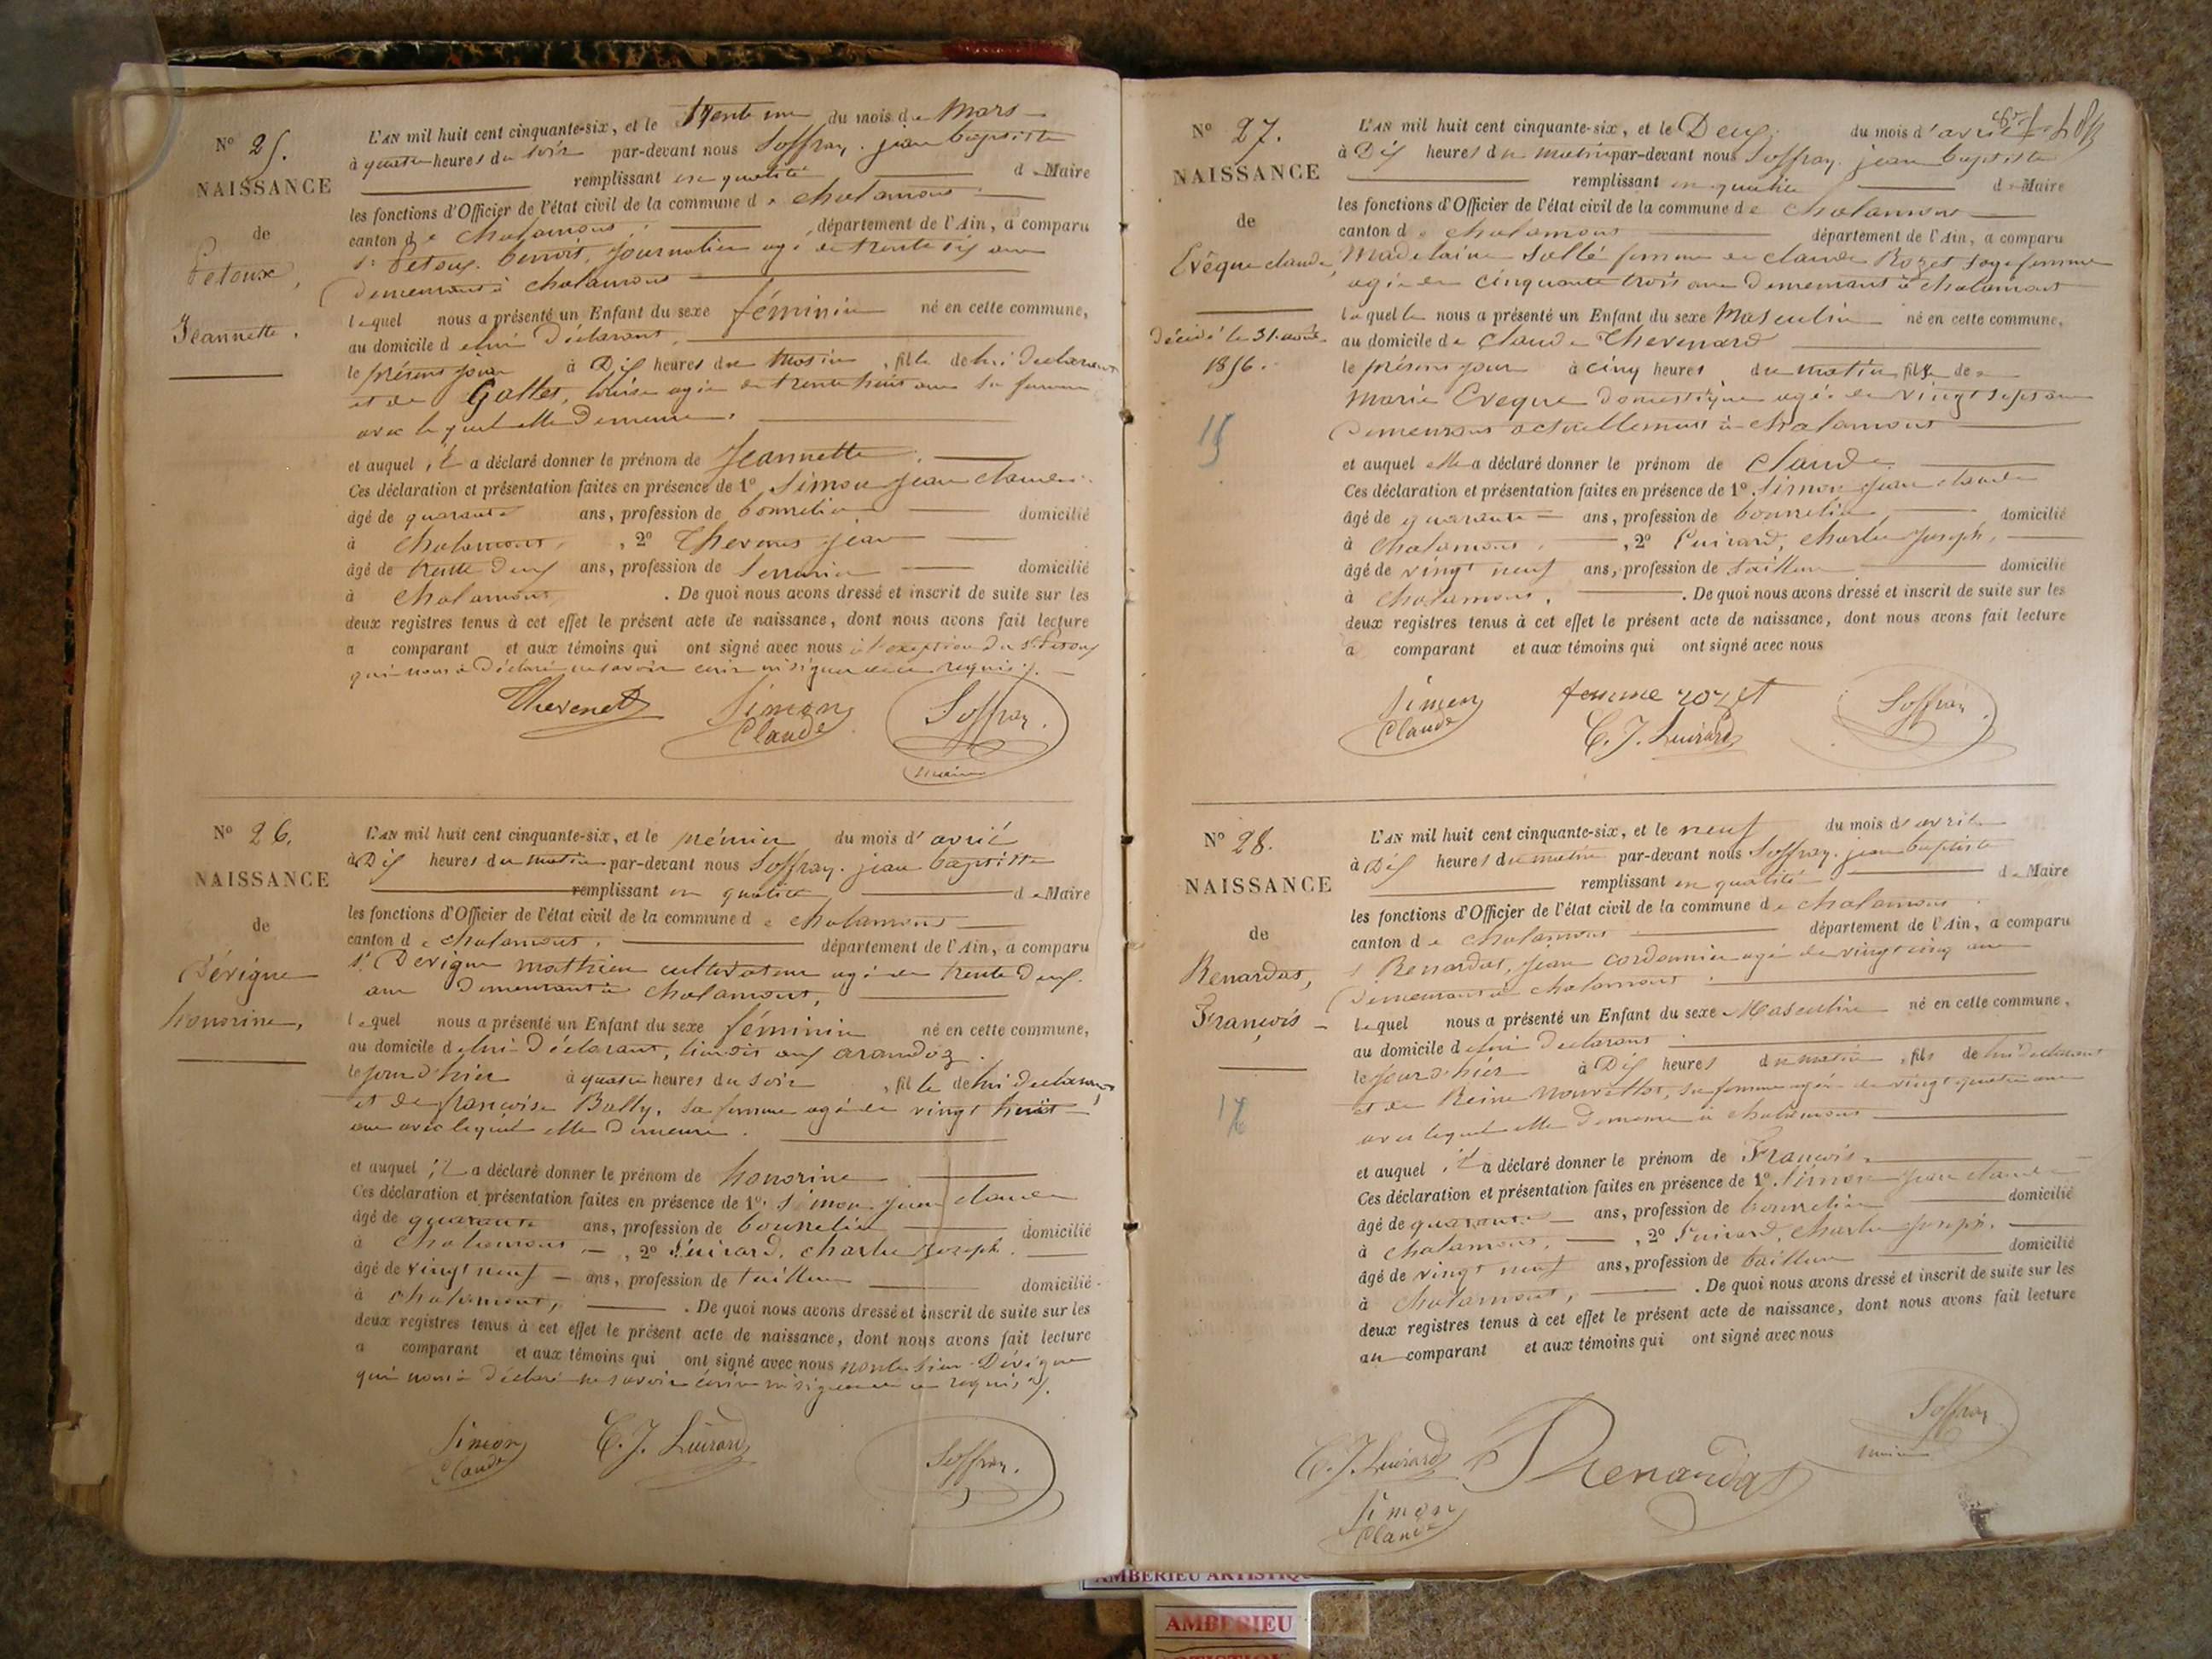 N° 25.
NAISSANCE
de
Petoux,
Jeannette.
L'AN mil huit cent cinquante-six, et le trente un du mois de Mars
à quatre heures du soir par-devant nous Soffray. jean baptiste
remplissant en qualité de Maire
les fonctions d'Officier de l'état civil de la commune de chalamont
canton de chalamont, département de l'Ain, a comparu
Sr Petoux. benoit, journalier agé de trente six ans
demeurant à chalamont
lequel nous a présenté un Enfant du sexe féminin né en cette commune,
au domicile de lui déclarant,
le présent jour à Dix heures du matin, fille de lui declarant
et de Gallet, louise agée de trente huit ans sa femme
avec lequel elle demeure.
et auquel il a déclaré donner le prénom de Jeannette.
Ces déclaration et présentation faites en présence de 1° Simon Jean claude
âgé de quarante ans, profession de bourrelier domicilié
à chalamont, 2° Thevenet jean
âgé de trente deux ans, profession de Serrurier domicilié
à chalamont. De quoi nous avons dressé et inscrit de suite sur les
deux registres tenus à cet effet le présent acte de naissance, dont nous avons fait lecture
a comparant et aux témoins qui ont signé avec nous à l'exception du Sr Petoux
qui nous a déclaré ne savoir écrire ni signer de ce requis.
Thevenet Simon Claude Soffray.
maire
N° 26.
NAISSANCE
de
Dérigne
honorine,
L'AN mil huit cent cinquante-six, et le prémier du mois d'avril
à Dix heures du matin par-devant nous Soffray. jean baptiste
remplissant en qualité de Maire
les fonctions d'Officier de l'état civil de la commune de chalamont
canton de chalamont. département de l'Ain, a comparu
Sr Derigne mathieu cultivateur agé de trente deux
ans demeurant à chalamont,
lequel nous a présenté un Enfant du sexe féminin né en cette commune,
au domicile de lui Déclarant, lieu dit aux arandoz.
le jour d'hier à quatre heures du soir, fille de lui declarant
et de françoise Bally, sa femme agée de vingt huit
ans avec lequel elle demeure.
et auquel il a déclaré donner le prénom de honorine
Ces déclaration et présentation faites en présence de 1° Simon jean claude
âgé de quarante ans, profession de bourrelier domicilié
à chalamont, 2° Luirard, charles Joseph.
âgé de vingt neuf ans, profession de tailleur domicilié
à chalamont, . De quoi nous avons dressé et inscrit de suite sur les
deux registres tenus à cet effet le présent acte de naissance, dont nous avons fait lecture
a comparant et aux témoins qui ont signé avec nous non le sieur Dérigne
qui nous a déclaré ne savoir écrire ni signer de ce requis.
Simon Claude C. J. Luirard Soffray.
N° 27.
NAISSANCE
de
Evêque claude,
décédé le 31 août
1856.
15
L'AN mil huit cent cinquante-six, et le Deux du mois d'avril
à Dix heures du matin par-devant nous Soffray. jean baptiste
remplissant en qualité de Maire
les fonctions d'Officier de l'état civil de la commune de chalamont
canton de chalamont département de l'Ain, a comparu
Madelaine Sallé femme de claude Rozet sage femme
agée de cinquante trois ans demeurant à chalamont
laquelle nous a présenté un Enfant du sexe Masculin né en cette commune,
au domicile de Claude Thevenard
le présent jour à cinq heures du matin, fils de
marie Eveque domestique agée de vingt sept ans
demeurant actuellement à chalamont
et auquel elle a déclaré donner le prénom de Claude.
Ces déclaration et présentation faites en présence de 1° Simon jean claude
âgé de quarante ans, profession de bourrelier, domicilié
à chalamont, 2° Luirard, charles joseph,
âgé de vingt neuf ans, profession de tailleur domicilié
à chalamont, . De quoi nous avons dressé et inscrit de suite sur les
deux registres tenus à cet effet le présent acte de naissance, dont nous avons fait lecture
a comparant et aux témoins qui ont signé avec nous
Simon Claude femme rozet Soffray
C. J. Luirard
N° 28.
NAISSANCE
de
Renardat,
François
L'AN mil huit cent cinquante-six, et le neuf du mois d'avril
à Dix heures du matin par-devant nous Soffray. jean baptiste
remplissant en qualité de Maire
les fonctions d'Officier de l'état civil de la commune de chalamont
canton de chalamont département de l'Ain, a comparu
Sr Renardat, jean cordonnier agé de vingt cinq ans
demeurant à chalamont
lequel nous a présenté un Enfant du sexe Masculin né en cette commune,
au domicile de lui declarant
le jour d'hier à Dix heures du matin, fils de lui declarant
et de Reine sa femme agée de vingt quatre ans
avec lequel elle demeure à chalamont
et auquel il a déclaré donner le prénom de François.
Ces déclaration et présentation faites en présence de 1° Simon jean claude
âgé de quarante ans, profession de bourrelier domicilié
à chalamont, 2° Luirard, charles joseph.
âgé de vingt neuf ans, profession de tailleur domicilié
à chalamont, . De quoi nous avons dressé et inscrit de suite sur les
deux registres tenus à cet effet le présent acte de naissance, dont nous avons fait lecture
au comparant et aux témoins qui ont signé avec nous
Soffray
maire
C. J. Luirard Renardat
Simon Claude
AMBERIEU ARTISTIQUE
AMBERIEU